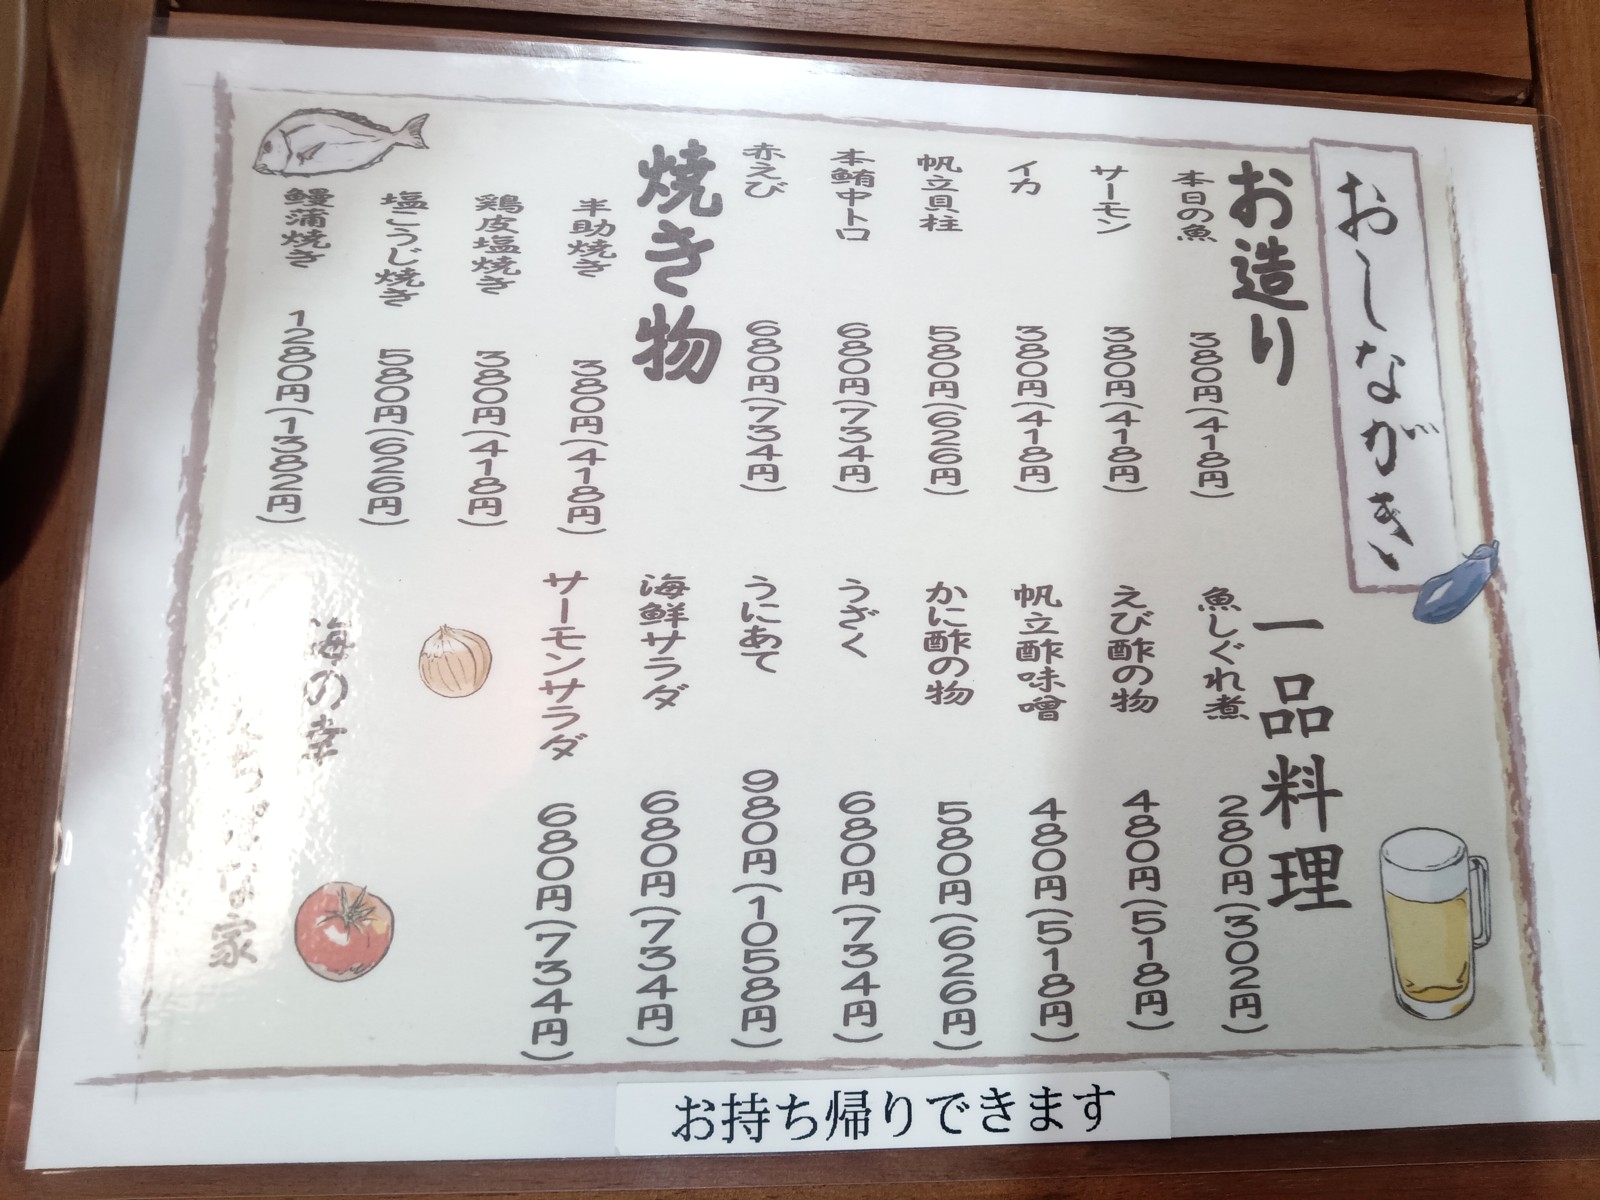 おしながき
お造り
本日の魚 380円(418円)
サーモン 380円(418円)
イカ 380円(418円)
帆立貝柱 580円(626円)
本鮪中トロ 680円(734円)
赤えび 680円(734円)
焼き物
半助焼き 380円(418円)
鶏皮塩焼き 380円(418円)
塩こうじ焼き 580円(626円)
鰻蒲焼き 1280円(1382円)
一品料理
魚しぐれ煮 280円(302円)
えび酢の物 480円(518円)
帆立酢味噌 480円(518円)
かに酢の物 580円(626円)
うざく 680円(734円)
うにあて 980円(1058円)
海鮮サラダ 680円(734円)
サーモンサラダ 680円(734円)
海の幸
家
お持ち帰りできます